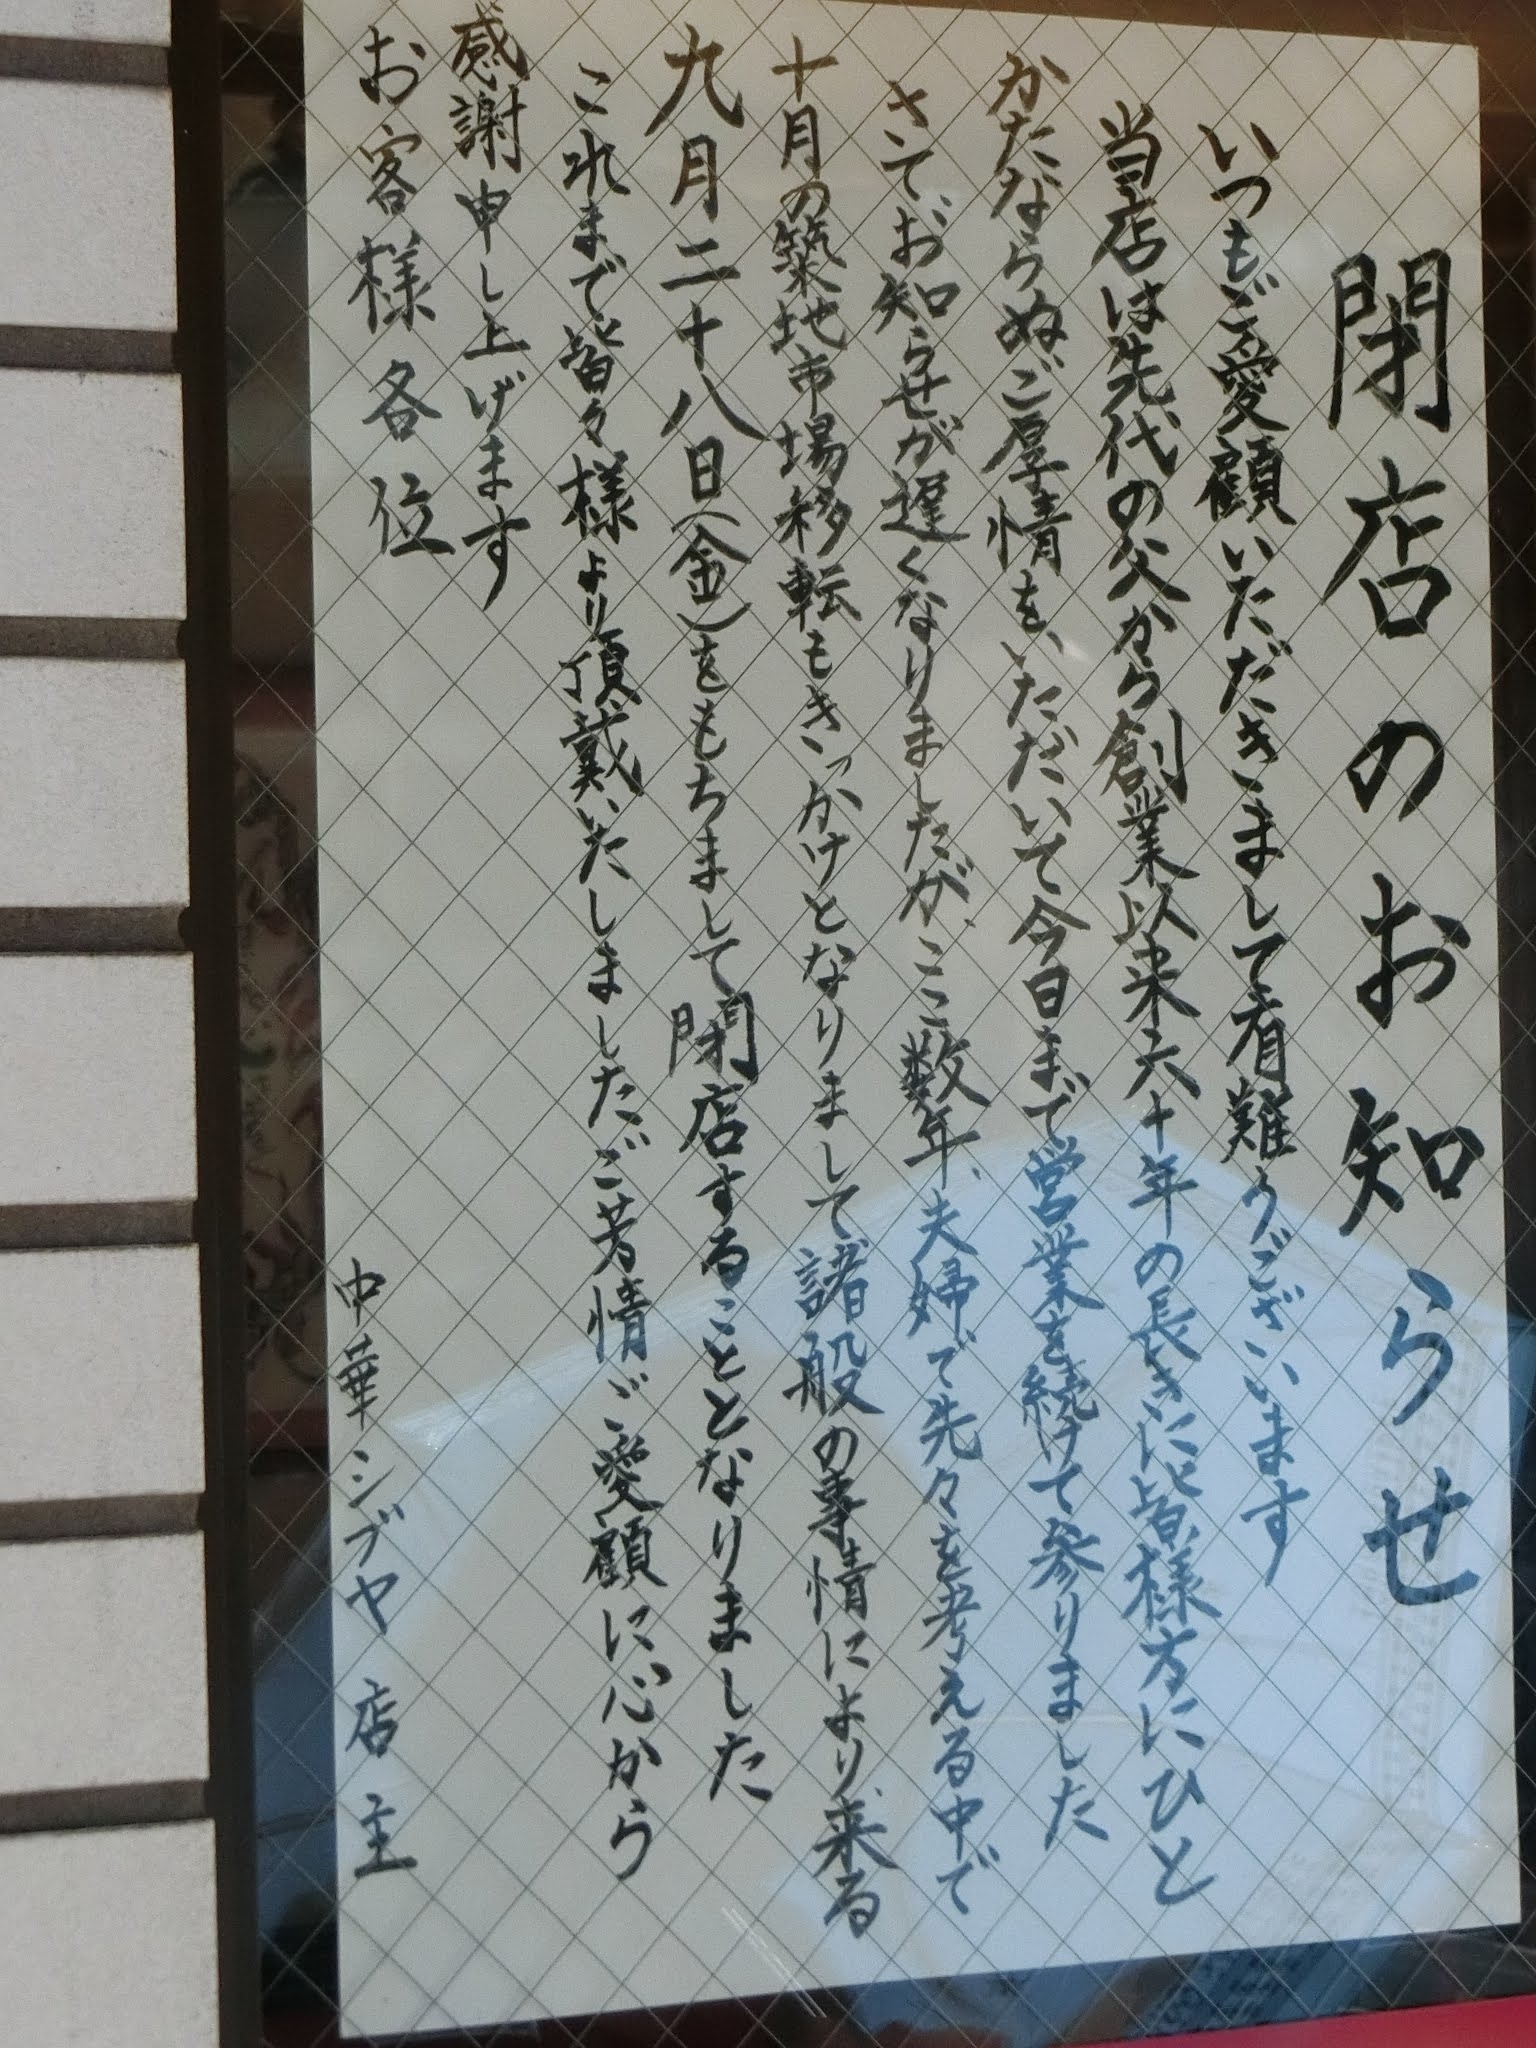 閉店のお知らせ
いつもご愛顧いただきまして有難うございます
当店は先代の父から創業以来六十年の長きに皆様方にひと
かたならぬご厚情を、いただいて今日まで営業を続けて参りました
さてお知らせが遅くなりましたが、ここ数年、夫婦で先々を考える中で
十月の築地市場移転もきっかけとなりまして、諸般の事情により、来る
九月二十八日(金)をもちまして閉店することとなりました
これまで皆々様より頂戴いたしましたご芳情、ご愛顧に心から
感謝申し上げます
お客様各位
中華シブヤ店主